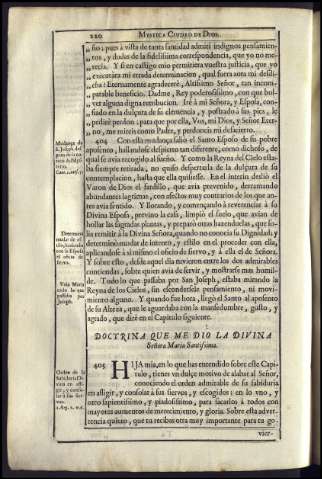 220 MYSTICA CIUDAD DE DIOS.
sso; pues à vista de tanta santidad admití indignos pensamien-
tos, y dudas de la fidelissima correspondencia, que yo no me-
recia. Y si en castigo mio permitiera vuestra justicia, que yo
executára mi errada determinacion, qual fuera aora mi desdi-
cha? Eternamente agradeceré, Altissimo Señor, tan incom-
parable beneficio. Dadme, Rey poderosissimo, con que bol-
ver alguna digna retribucion. Iré à mi Señora, y Esposa, con-
fiado en la dulçura de su clemencia, y postrado à sus pies, le
pediré perdon; para que por ella, Vos, mi Dios, y Señor Eter-
no, me mireis como Padre, y perdoneis mi desacierto.
404 Con esta mudança salió el Santo Esposo de su pobre
aposento, hallandose despierto tan diferente, como dichoso, de
qual se avia recogido al sueño. Y como la Reyna del Cielo esta-
ba siempre retirada, no quiso despertarla de la dulçura de su
contemplacion, hasta que ella quisiesse. En el interin desliò el
Varon de Dios el fardillo, que avia prevenido, derramando
abundantes lagrimas, con afectos muy contrarios de los que an-
tes avia sentido. Y llorando, y començando à reverenciar à su
Divina Esposa, previno la casa, limpiò el suelo, que avian de
hollar las sagradas plantas, y preparò otras hazenduelas, que so-
lia remitir à la Divina Señora, quando no conocia su Dignidad, y
determinò mudar de intento, y estilo en el proceder con ella,
aplicandose à sí mismo el oficio de siervo, y à ella el de Señora.
Y sobre esto, desde aquel dia tuvieron entre los dos admirables
contiendas, sobre quien avia de servir, y mostrarse mas humil-
de. Todo lo que passaba por San Joseph, estaba mirando la
Reyna de los Cielos, sin escondersele pensamiento, ni movi-
miento alguno. Y quando fue hora, llegò el Santo al aposento
de su Alteza, que le aguardaba con la mansedumbre, gusto, y
agrado, que diré en el Capitulo siguiente.
DOCTRINA QUE ME DIO LA DIVINA
Señora Maria Santissima.
405 HIJA mia, en lo que has entendido sobre este Capi-
tulo, tienes un dulce motivo de alabar al Señor,
conociendo el orden admirable de su sabiduria
en afligir, y consolar à sus siervos, y escogidos: en lo uno, y
otro sapientissimo, y piadosissimo, para sacarlos à todos con
mayores aumentos de merecimiento, y gloria. Sobre esta adver-
tencia quiero, que tu recibas otra muy importante para tu go-
vier-